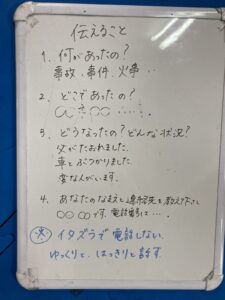 伝えること
1. 何があったの?
事故、事件、火事…
2. どこであったの?
〇〇市〇〇……
3. どうなったの?どんな状況?
父がたおれました。
車とぶつかりました。
変な人がいます。
4. あなたのなまえと連絡先を教えて下さい
〇〇 〇〇です。電話番号は…。
※ イタズラで電話しない。
ゆっくりと、はっきりと話す。